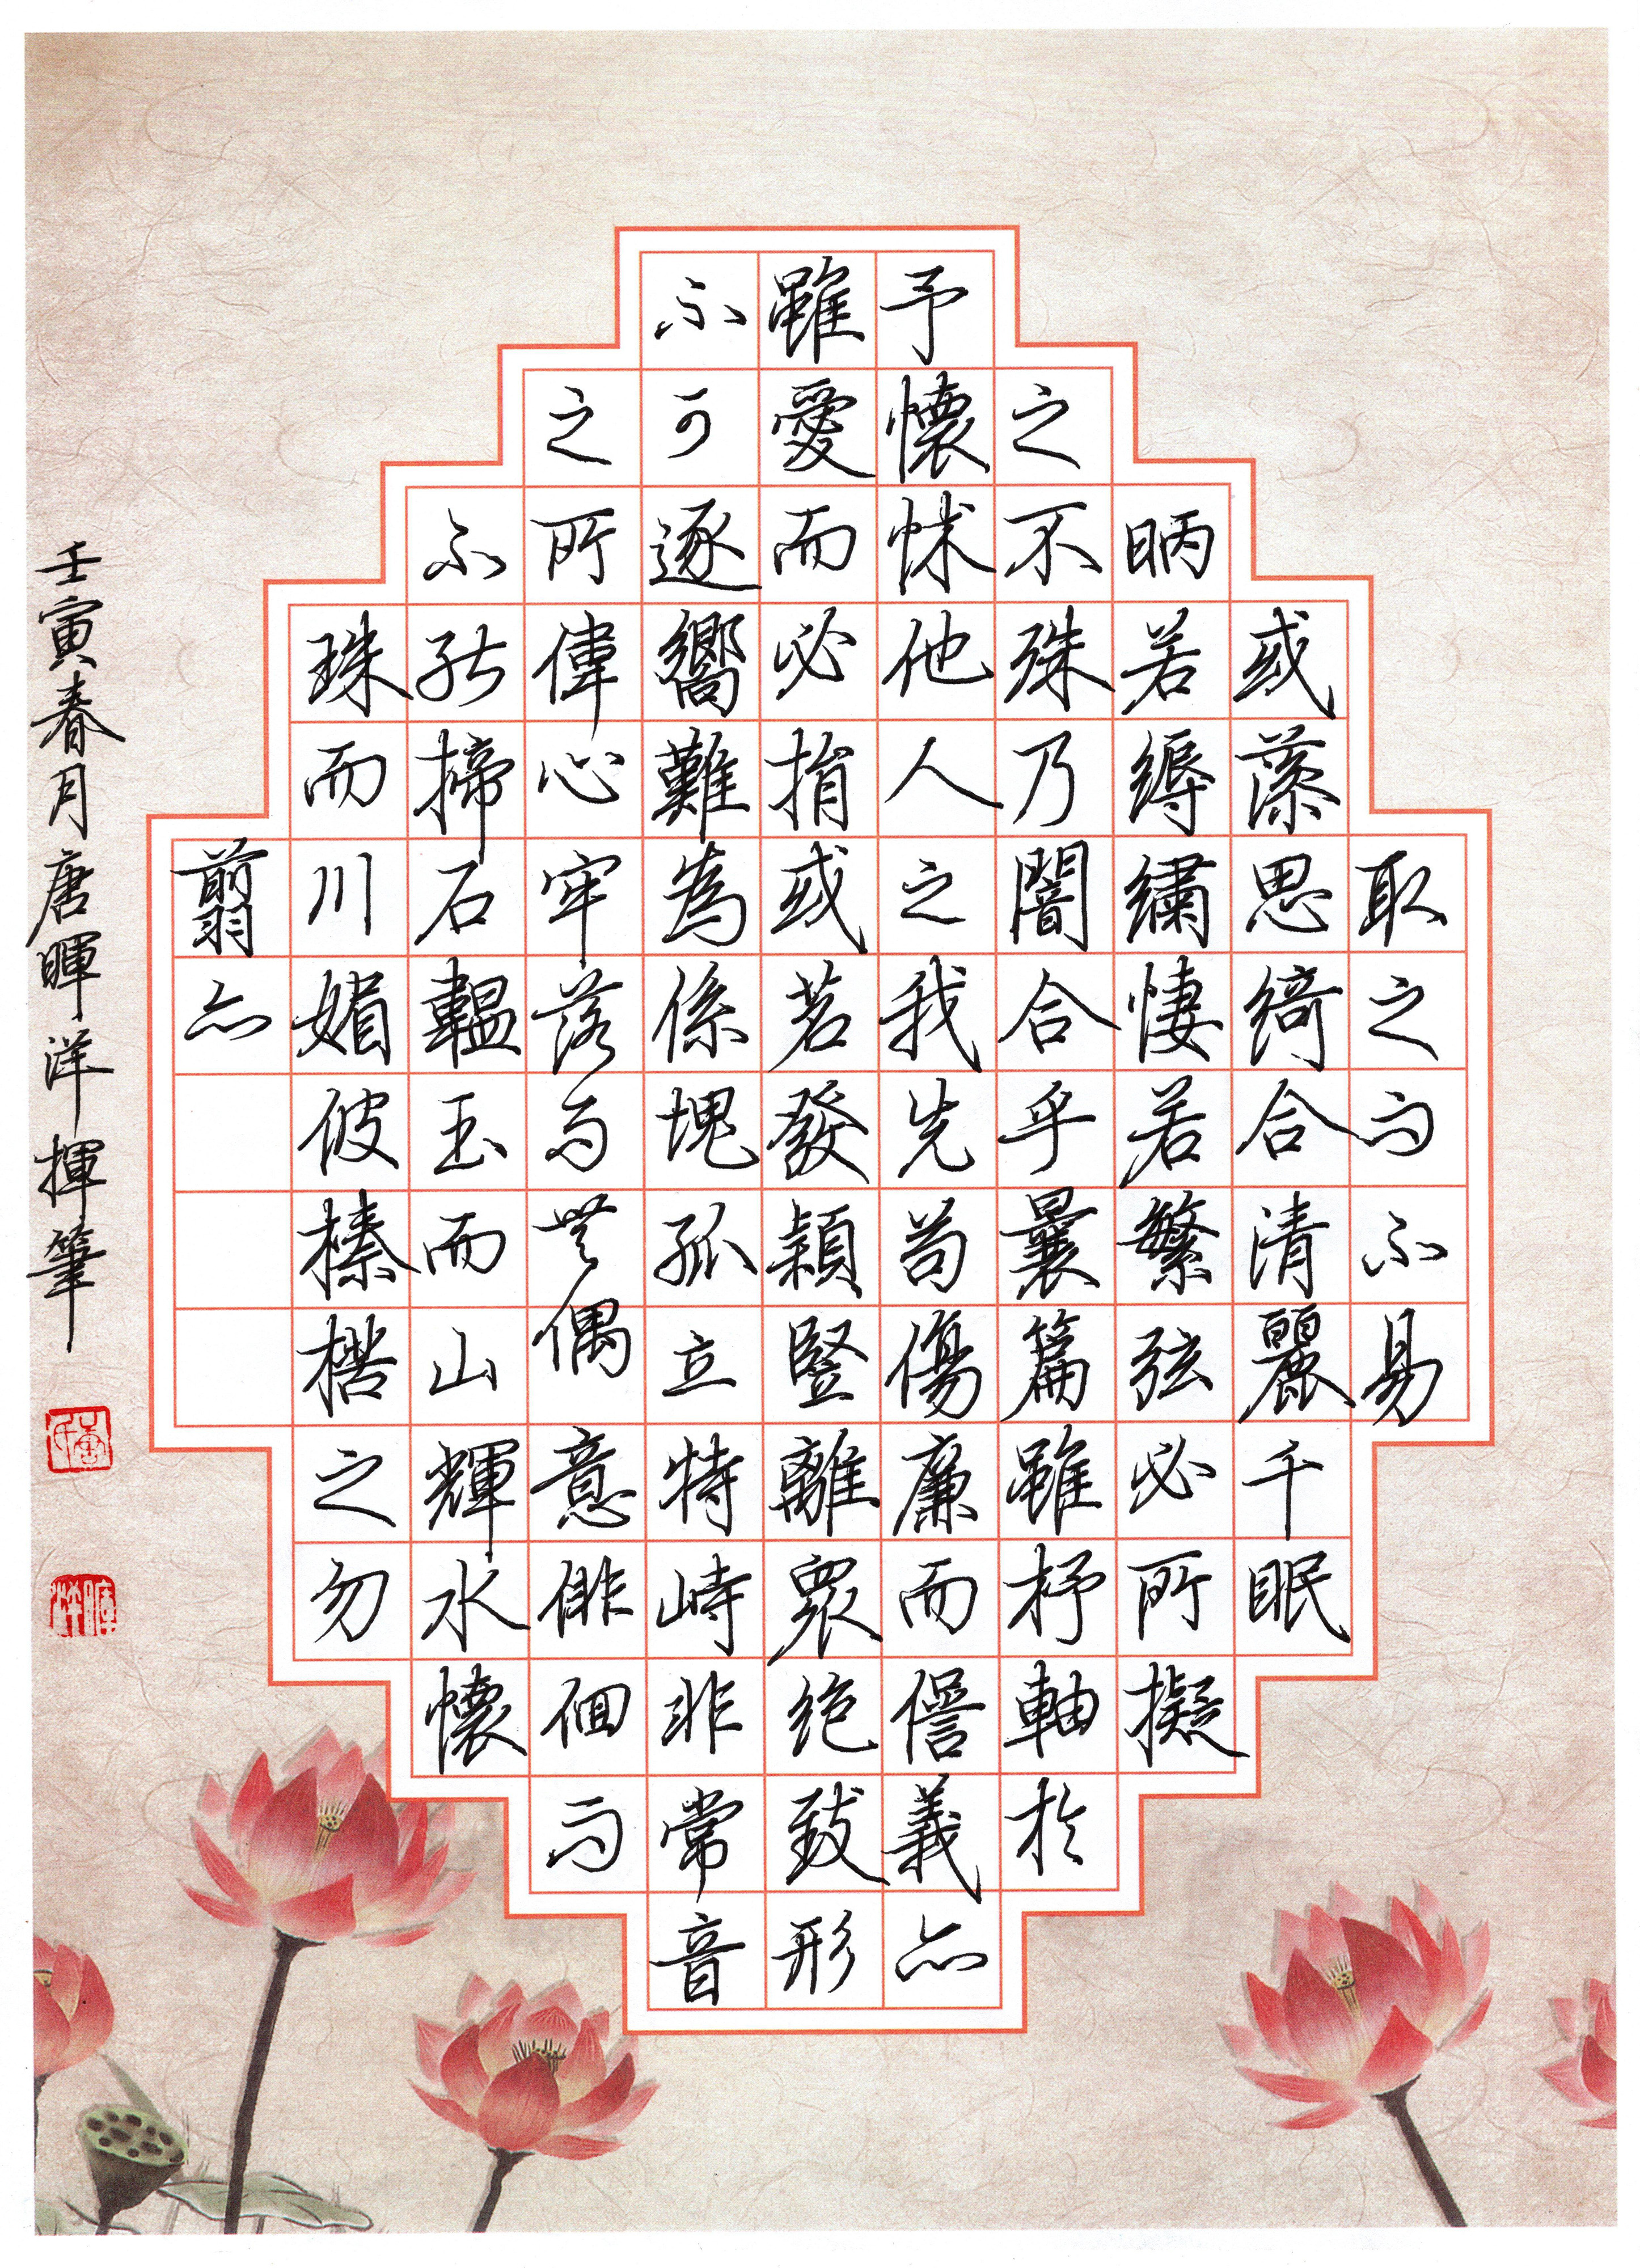 取足而不易
或藻思綺合清麗千眠
昞若縟繡悽若繁弦必所擬
之不殊乃闇合乎曩篇雖杼軸於
予懷怵他人之我先苟傷廉而諐義亦
雖愛而必捐或苕發穎豎離眾絕致形
不可逐嚮難為係塊孤立特峙非常音
之所偉心牢落而無偶意俳佪而
不能揥石韞玉而山輝水懷
珠而川媚彼榛楛之勿
翦亦
壬寅春月唐暉洋揮筆